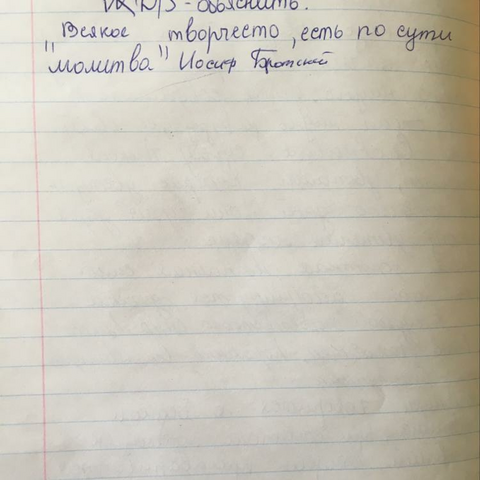 Д/З - объяснить.
"Всякое творчесто, есть по сути
молитва" Иосиф Бродский